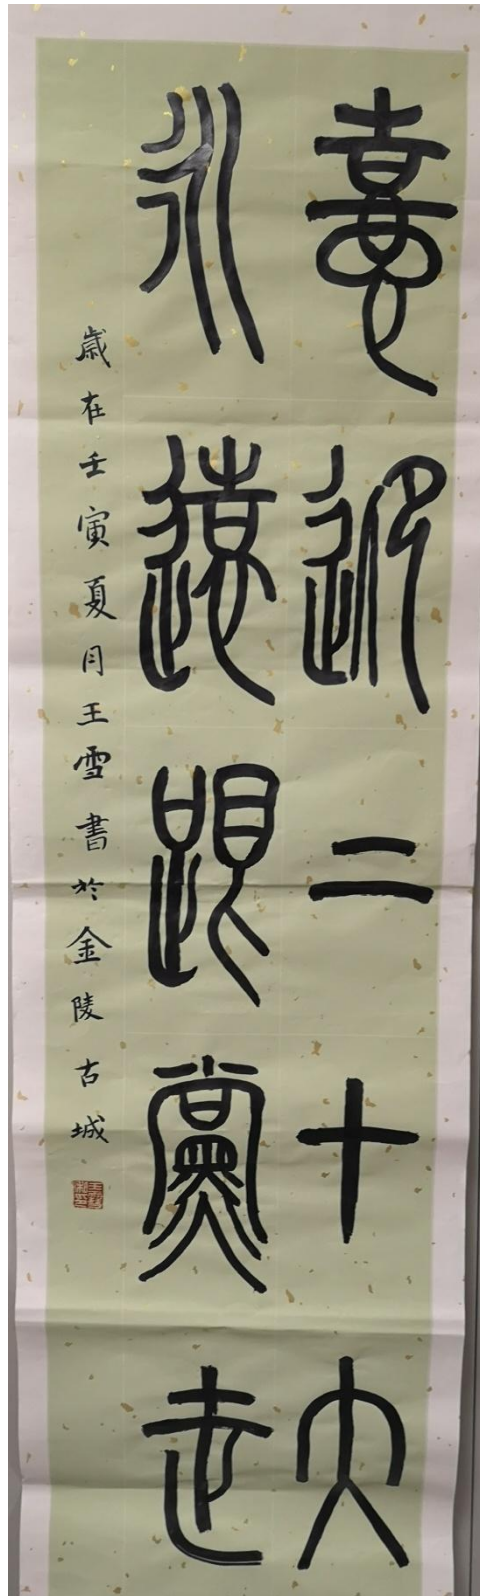 喜迎二十大
永遠跟黨走
歲在壬寅夏月王雪書於金陵古城